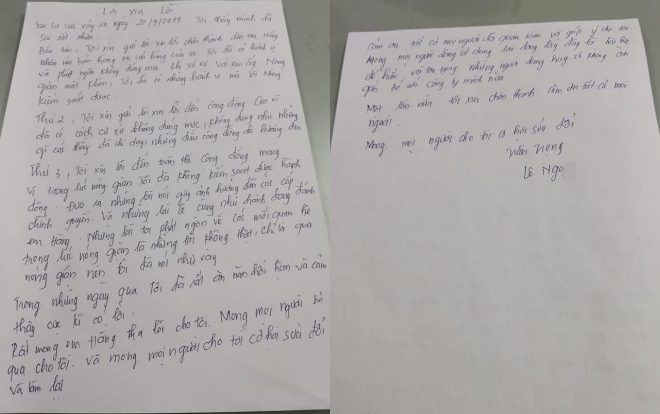 Lời xin Lỗi
Sau sự việc xảy ra ngày 20/9/2019 Tôi thấy mình đã
Sai rất nhiều.
Đầu tiên, Tôi xin gửi lời xin lỗi chân thành đến em Hằng
Nhân viên bán hàng tại cửa hàng của tôi. Tôi đã có hành vi
và phát ngôn không đúng mực khi xô xát với em ấy. Nóng
giận mất khôn, Tôi đã có những hành vi mà tôi không
kiểm soát được.
Thứ 2, Tôi xin gửi lời xin lỗi đến cộng đồng. Cao vì
đã có cách cư xử không đúng mực, không đúng như những
gì các thầy đã chỉ dạy, những điều cộng đồng đã hướng đến
Thứ 3, Tôi xin lỗi đến toàn thể Cộng đồng mạng
Vì trong lúc nóng giận Tôi đã không kiểm soát được hành
động. Đưa ra những lời nói gây ảnh hưởng đến các cấp
chính quyền. Và những lời lẽ cũng như hành động đánh
em Hằng. Những lời tôi phát ngôn về các mối quan hệ
trong lúc nóng giận là những lời không thật, chỉ là quá
nóng giận nên tôi đã nói như vậy.
Trong những ngày qua Tôi đã rất ăn năn hối hận và cảm
thấy cực kì có lỗi.
Rất mong em Hằng tha lỗi cho tôi. Mong mọi người bỏ
qua cho tôi. và mong mọi người cho tôi cơ hội sửa đổi
và làm lại
Cảm ơn tất cả mọi người đã quan tâm và góp ý cho tôi
Mong mọi người đừng sử dụng lan đừng lây lây tới
để hiểu và tôn trọng những người đúng hay sẽ không còn
gắn bó với công ty mình nữa.
Một lần nữa tôi xin chân thành cảm ơn tất cả mọi
người.
Mong mọi người cho tôi cơ hội sửa đổi
Trân trọng
Lê Ngọ